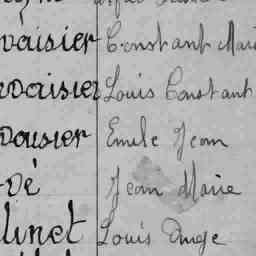 vaisier Constant Mari
rvaisier Louis Constant
vousier Emile Jean
Vé Jean Marie
linet Louis Ange